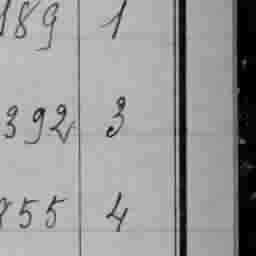 189 1
392 3
855 4